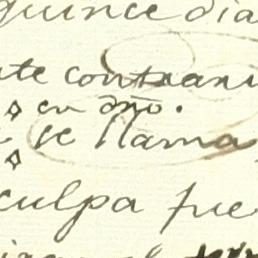 quince dia
te contrani
en dño.
se llama
culpa fue